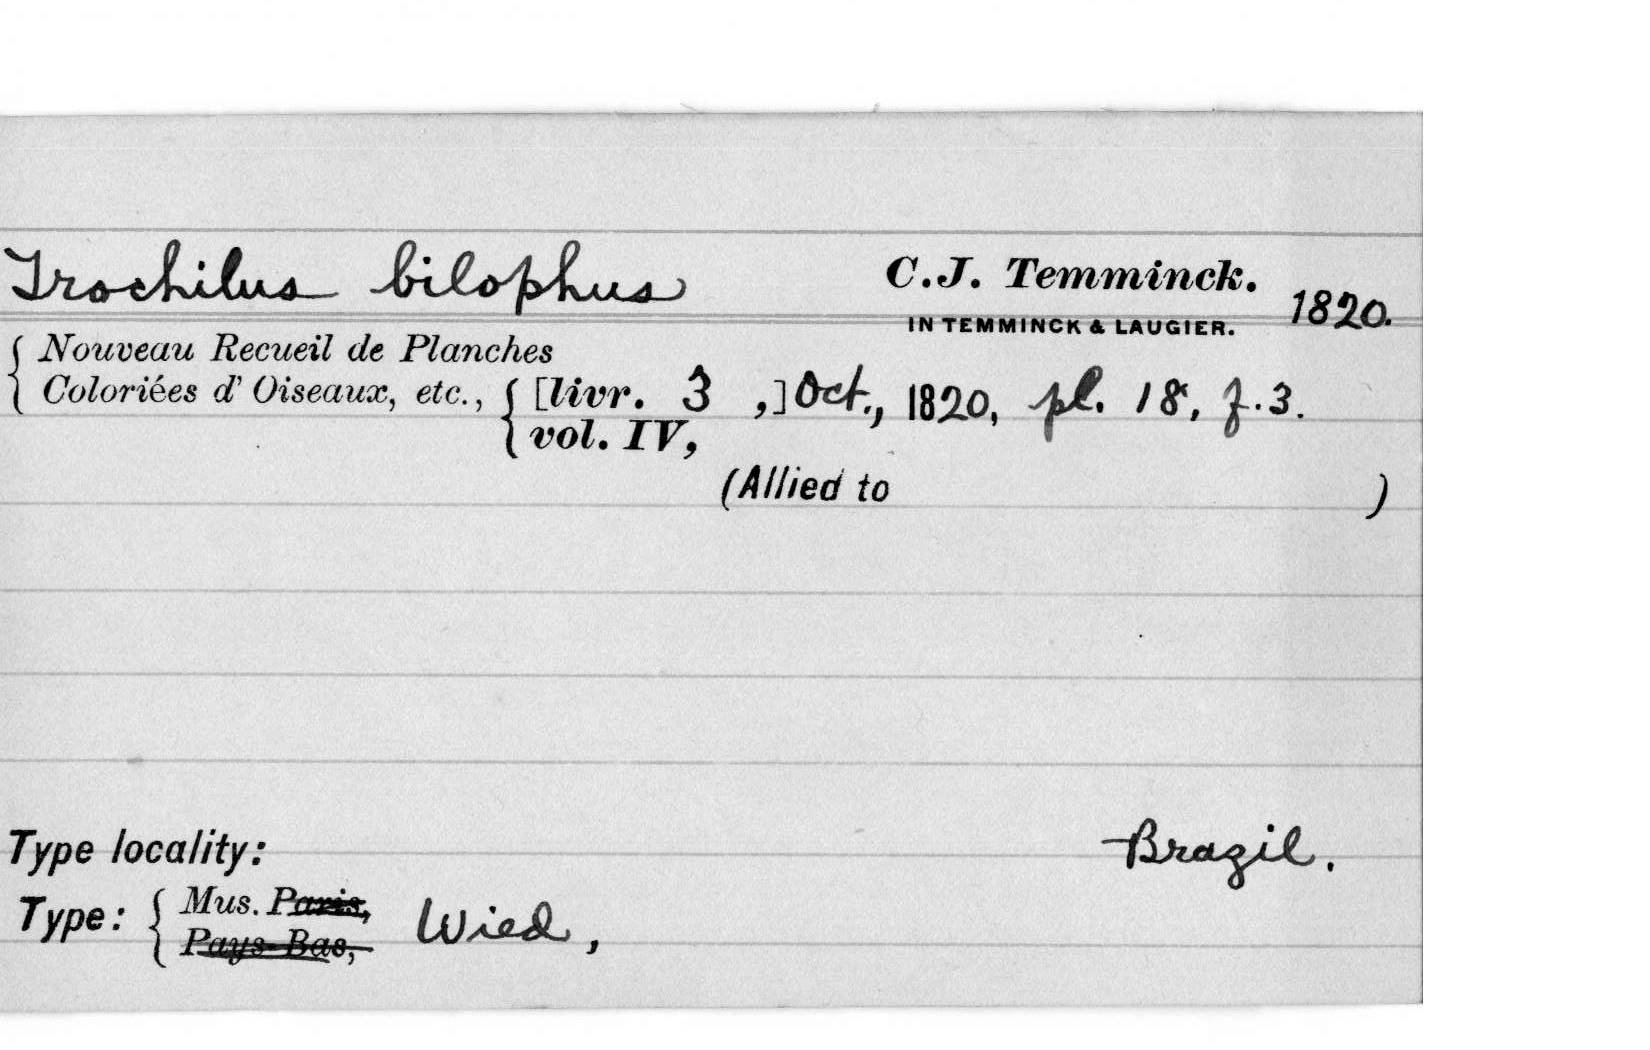 Trochilus bilophus C.J. Temminck.
IN TEMMINCK & LAUGIER. 1820.
Nouveau Recueil de Planches
Coloriées d' Oiseaux, etc., [livr. 3 ,] Oct., 1820, pl. 18, f. 3.
vol. IV,
(Allied to )
Type locality: Brazil.
Type: Mus. Paris, Wied,
Pays-Bas,